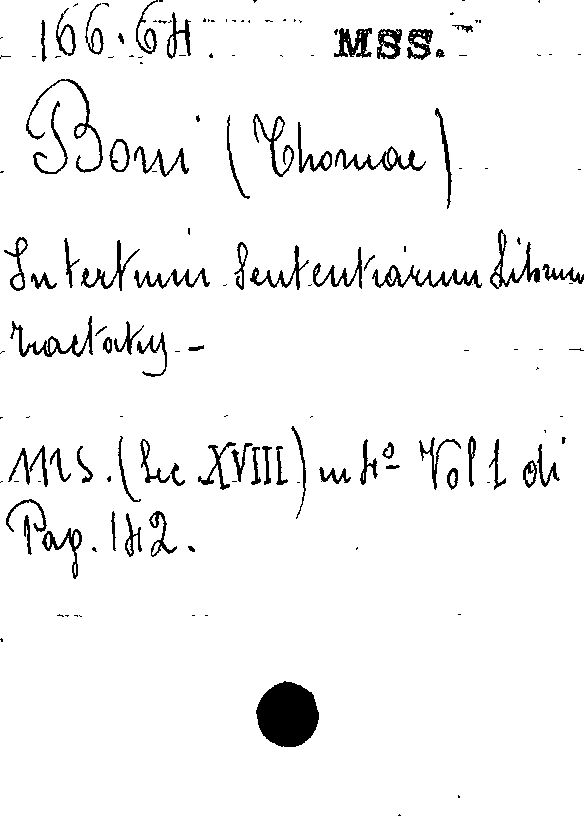 166.64. MSS.
Boni (Thomae)
In tertium Sententiarum Librum
tractatus -
MS. (Sec. XVIII) in 4º Vol 1 di
Pag. 142.